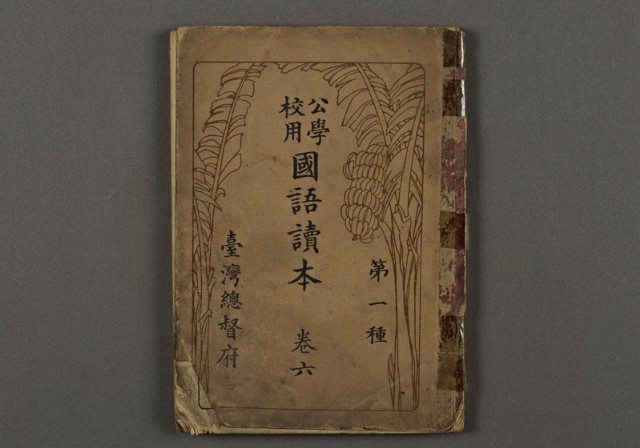 第一種
公學校用
國語讀本 卷六
臺灣總督府